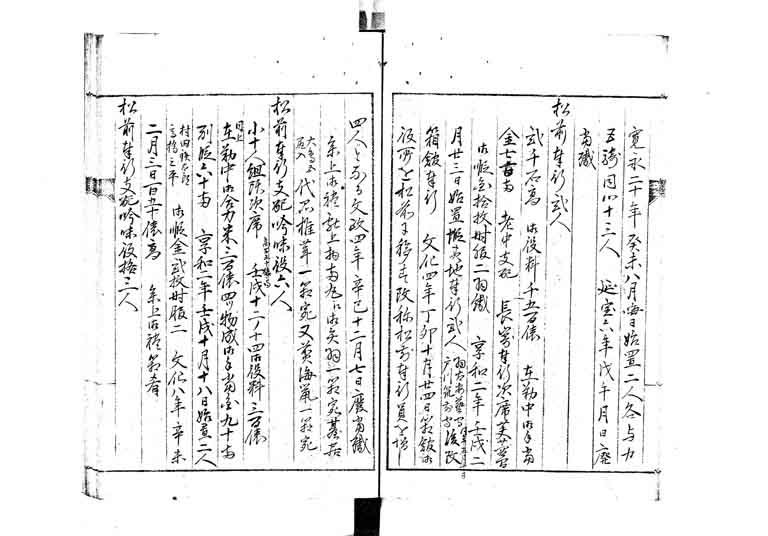 寛永二十年癸未八月晦日始置二人各与力
五騎同心十三人 延宝六年戊午月日廃
当職
松前奉行弐人
弐千石高 御役料千五百俵 在勤中御手当
金七百両 老中支配 長崎奉行次席芙蓉
御暇金拾枚時服二羽織 享和二年壬戌二
月廿三日始置蝦夷地奉行弐人 後改
箱館奉行 文化四年丁卯十月廿四日箱館御
役所を松前に移す改称松前奉行員を増
四人となる文政四年辛巳十二月七日廃当職
参上御礼献上物
代黒椎茸一箱宛又黄海鼠一箱宛
松前奉行支配吟味役六人
小十人組頭次席 壬戌十二ノ十四御役料三百俵
在勤中御合力米三百俵四ツ物成御手当金九十両
別段六十両 享和二年壬戌十月十八日始置二人
御暇金弐枚時服二 文化八年辛未
二月三日百五十俵高 参上御礼箱肴
松前奉行支配吟味役格三人